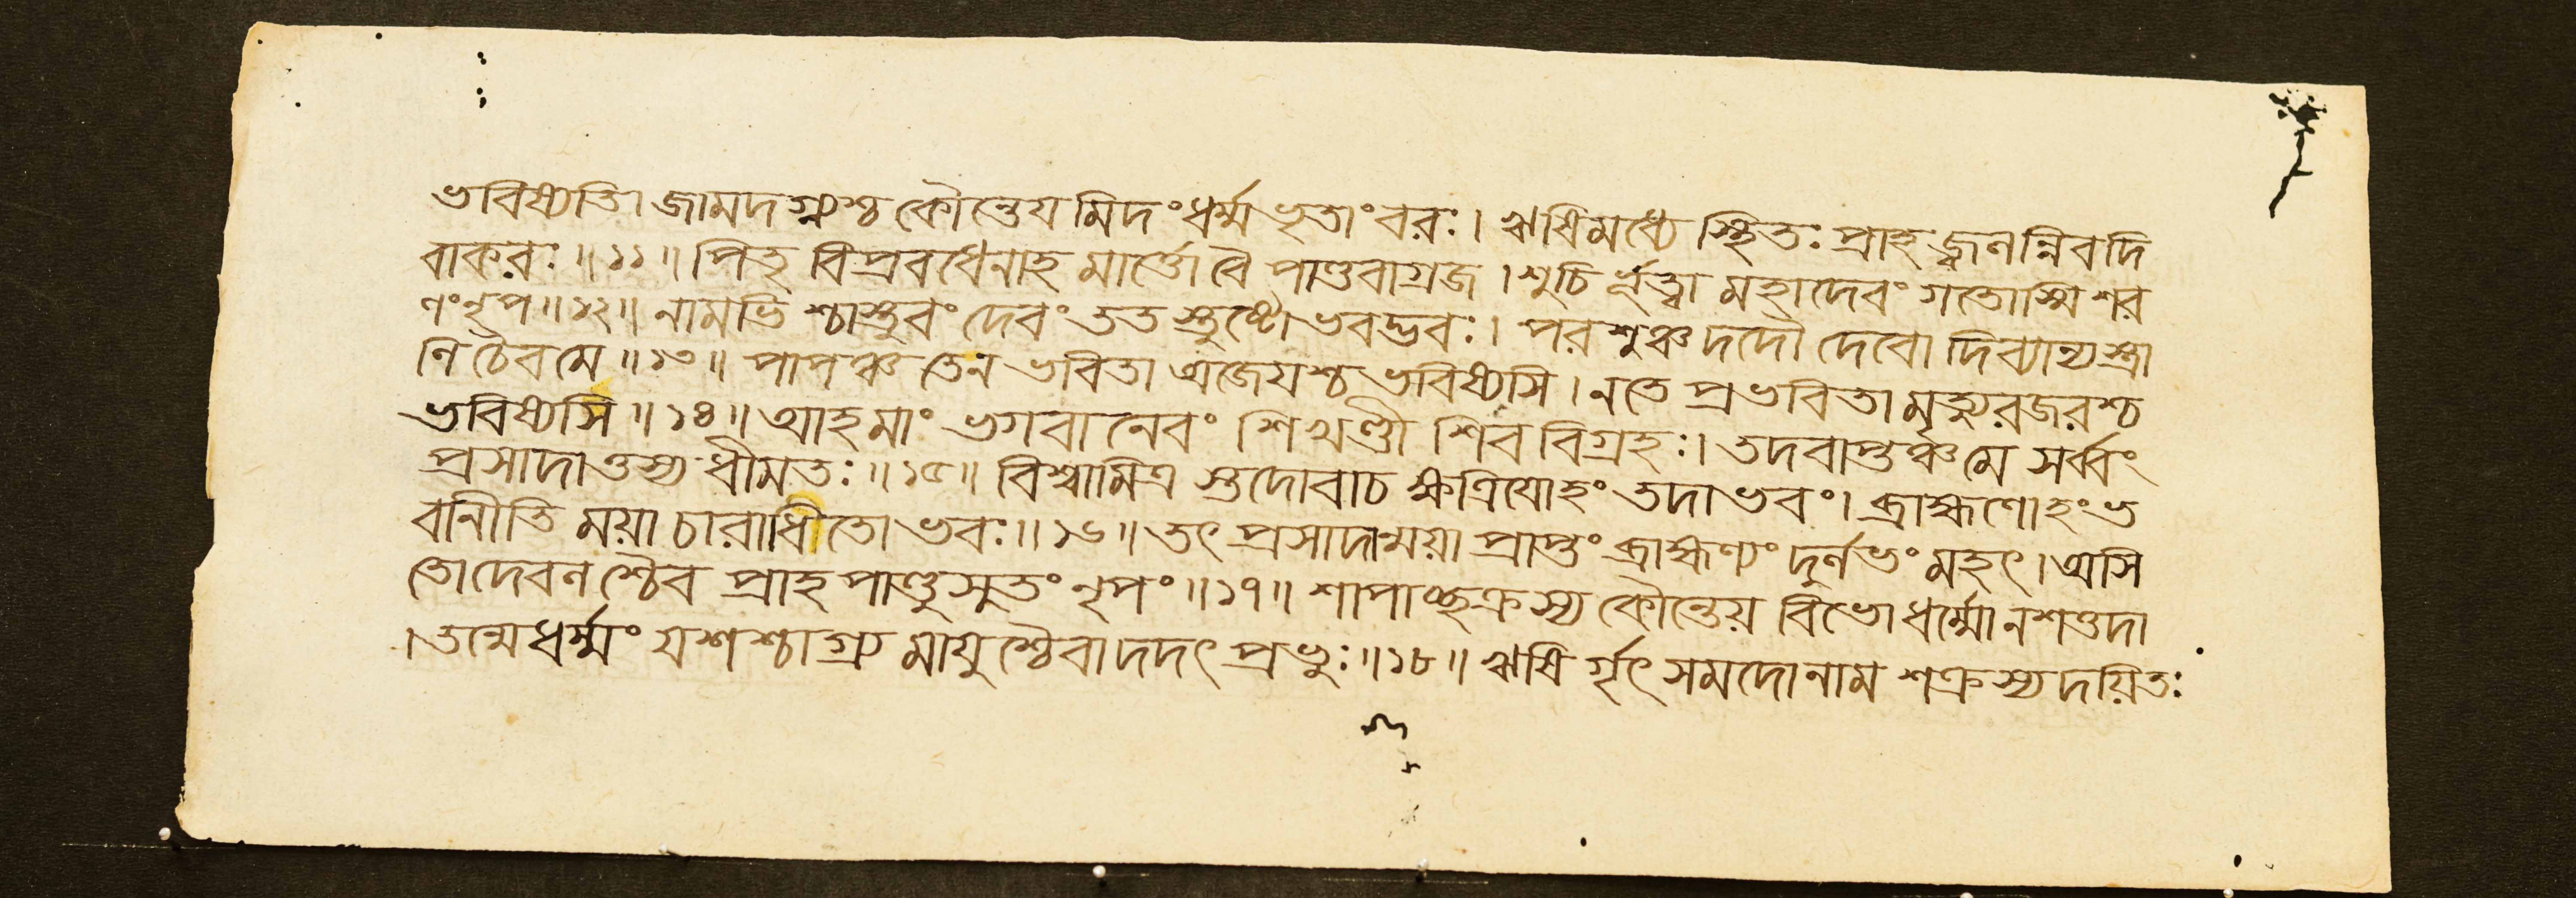 ভবিষ্যতি। জামদগ্ন্যশ্চ কৌন্তেয মিদং ধর্ম্মভৃতাং বরঃ। ঋষিমধ্যে স্থিতঃ প্রাহ জ্বলন্নিব দি
বাকরঃ॥১১॥ পিতৃ বিপ্রবধেনাহ মার্ত্তো বৈ পাণ্ডবাগ্রজ। শুচি র্ভূত্বা মহাদেবং গতোস্মি শর
ণং নৃপ॥১২॥ নামভি শ্চাস্তুবং দেবং তত স্তুষ্টো ভবদ্ভবঃ। পরশুঞ্চ দদৌ দেবো দিব্যান্যস্ত্রা
ণি চৈব মে॥১৩॥ পাপঞ্চ তেন ভবিতা অজেযশ্চ ভবিষ্যসি। নতে প্রভবিতা মৃত্যুরজরশ্চ
ভবিষ্যসি॥১৪॥ আহ মাং ভগবানেবং শিখণ্ডী শিব বিগ্রহঃ। তদবাপ্তঞ্চ মে সর্ব্বং
প্রসাদাত্তস্য ধীমতঃ॥১৫॥ বিশ্বামিত্র স্তদোবাচ ক্ষত্রিযোহং তদাভবং। ব্রাহ্মণোহং ভ
বানীতি ময়া চারাধীতো ভবঃ॥১৬॥ তৎ প্রসাদান্ময়া প্রাপ্তং ব্রাহ্মণ্যং দুর্লভং মহৎ। অসি
তো দেবলশ্চৈব প্রাহ পাণ্ডুসুতং নৃপং॥১৭॥ শাপাচ্ছক্রস্য কৌন্তেয় বিভো ধর্ম্মো নশত্তদা
। তন্মে ধর্ম্মং যশশ্চাগ্র্য মাযুশ্চৈবাদদৎ প্রভুঃ॥১৮॥ ঋষি র্গৃৎসমদো নাম শক্রস্য দয়িতঃ